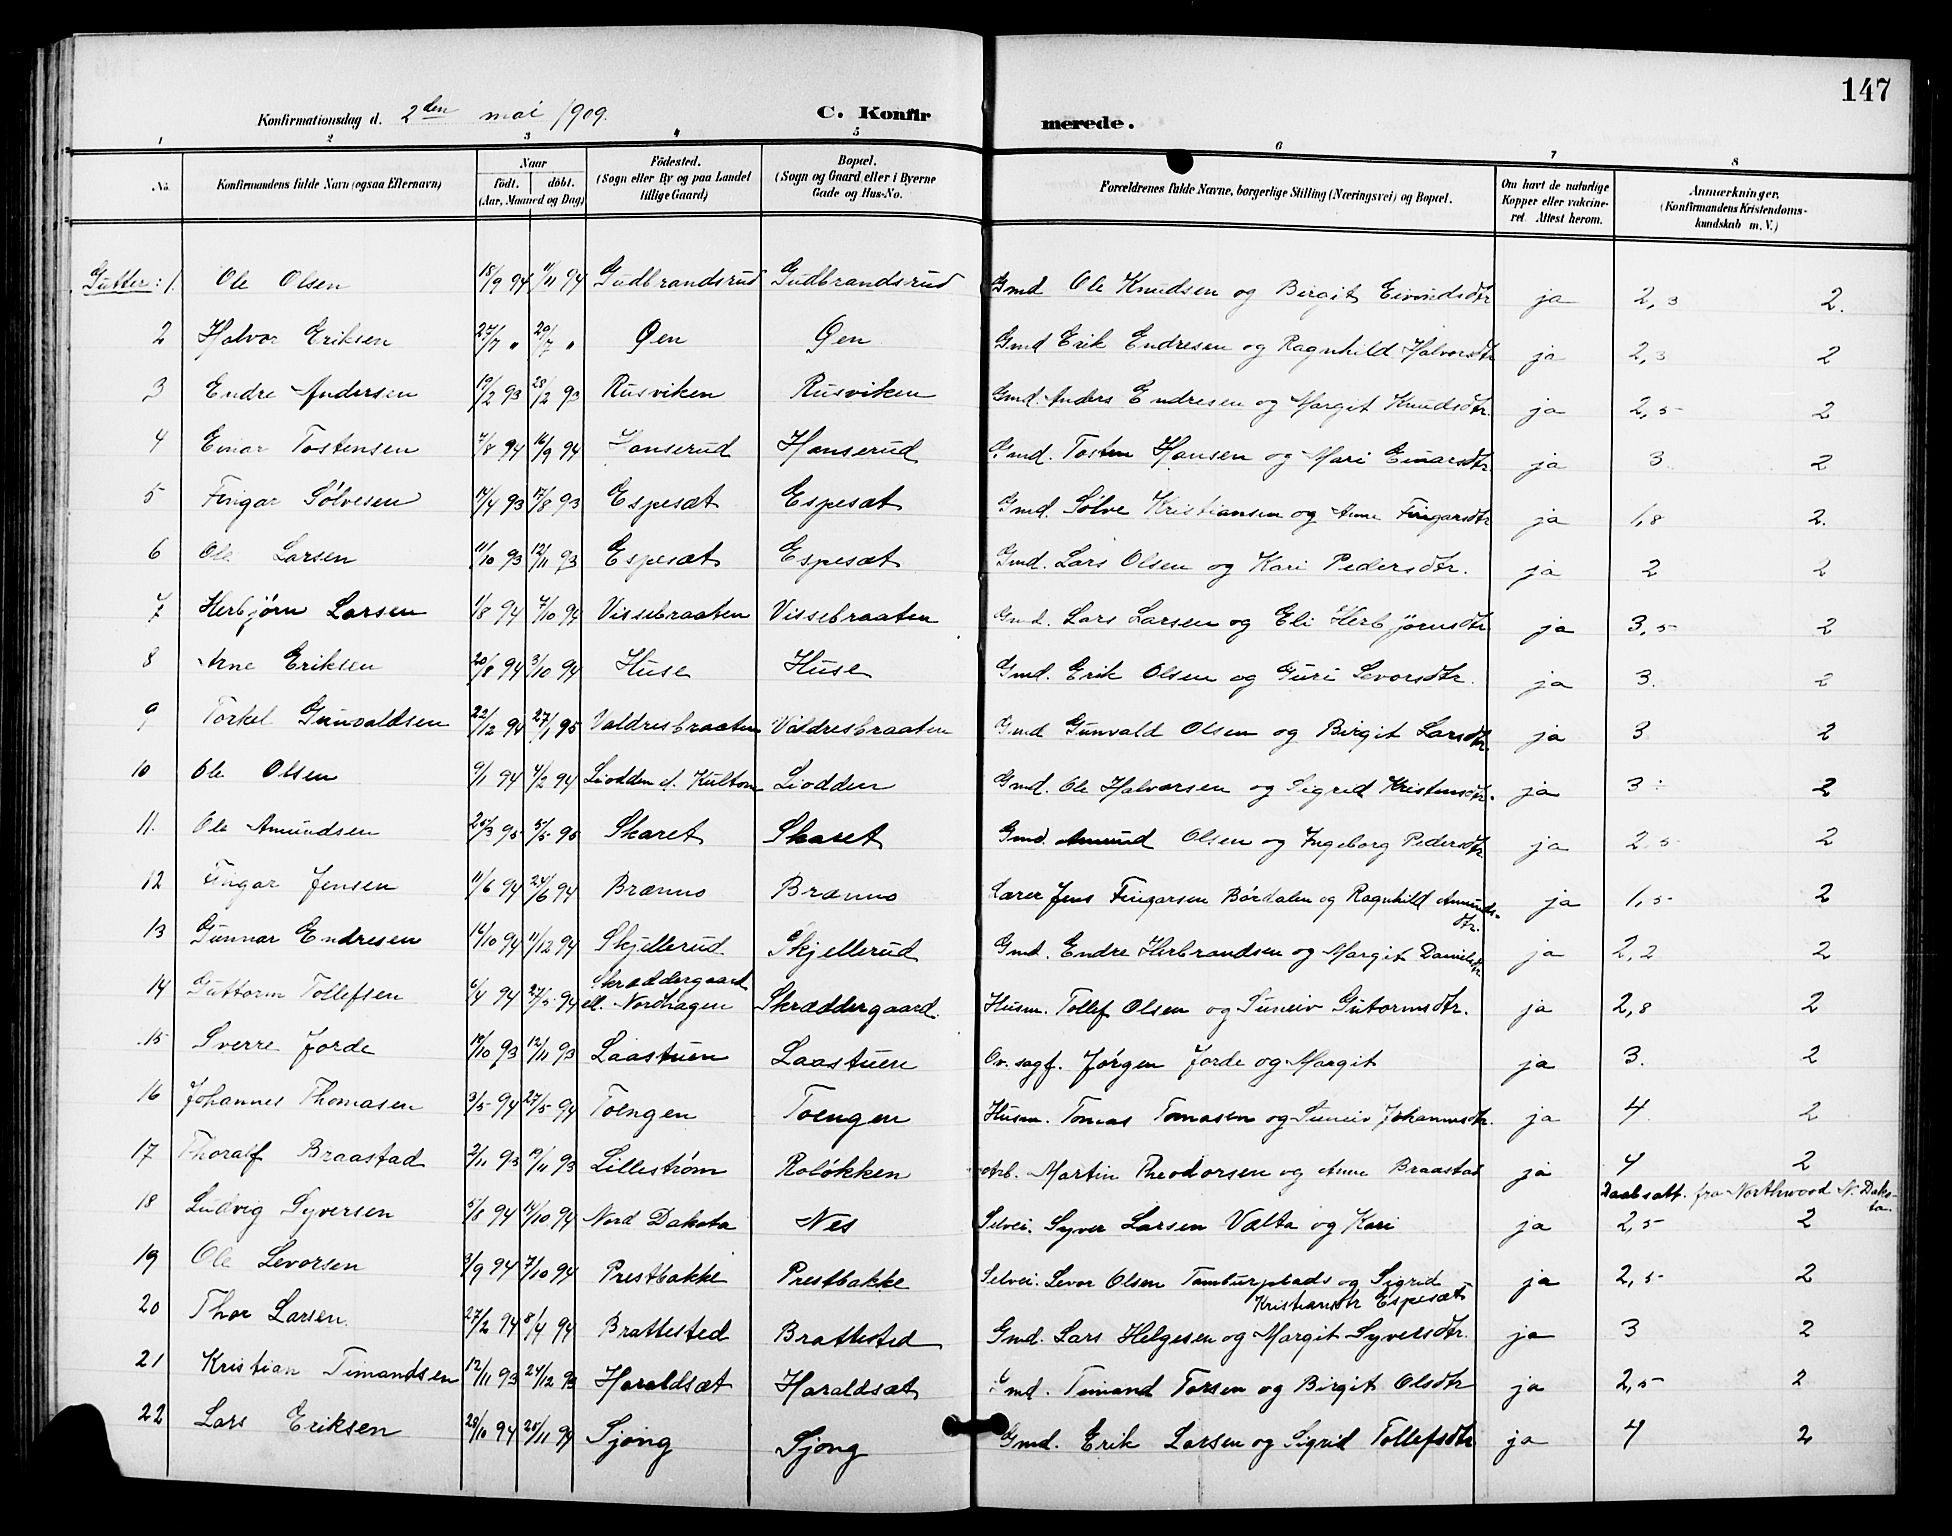 147
Konfirmationsdag d. 2den mai 1909. C. Konfirmerede.
1 2 3 4 5 6 7 8
No. Konfirmandens fulde Navn (ogsaa Efternavn) Naar født. døbt. (Aar, Maaned og Dag) Fødested. (Sogn eller By og paa Landet tillige Gaard) Bopæl. (Sogn og Gaard eller i Byerne Gade og Hus-No. Forældrenes fulde Navne, borgerlige Stilling (Næringsvei) og Bopæl. Om havt de naturlige Kopper eller vakcineret. Attest herom. Anmærkninger. (Konfirmandens Kristendomskundskab m. V.)
Gutter: 1. Ole Olsen 18/9 94 11/11 94 Gudbrandsrud Gudbrandsrud Gmd Ole Knudsen og Birgit Eivindsdtr ja 2,3 2.
2 Halvor Eriksen 27/7 " 29/7 " Øen Øen Gmd Erik Endresen og Ragnhild Halvorsdtr ja 2,3 2
3 Endre Andersen 19/2 93 28/2 93 Rusviken Rusviken Gmd. Anders Endresen og Margit Knudsdtr. ja 2,5 2
4 Einar Tostensen 7/8 94 16/9 94 Hanserud Hanserud Gmd. Tosten Hansen og Mari Einarsdtr ja 3. 2
5 Fingar Sølvesen 17/4 93 17/8 93 Espesæt Espesæt Gmd. Sølve Kristiansen og Anne Fingarsdtr ja 1,8 2.
6 Ole Larsen 11/10 93 12/11 93 Espesæt Espesæt Gmd. Lars Olsen og Kari Pedersdtr. ja 2 2
7 Herbjørn Larsen 1/8 94 7/10 94 Vissebraaten Vissebraaten Gmd. Lars Larsen og Eli Herbjørnsdtr ja 3,5 2
8 Arne Eriksen 20/8 94 3/10 94 Huse Huse Gmd. Erik Olsen og Guri Levorsdtr. ja 3. 2
9 Torkel Gunvaldsen 22/12 94 27/1 95 Valdresbraaten Valdresbraaten Gmd Gunvald Olsen og Birgit Larsdtr. ja 3 2
10 Ole Olsen 9/1 94 4/2 94 Liodden Liodden Gmd. Ole Halvorsen og Sigrid Kristensdtr. ja 3 2
11. Ole Amundsen 25/3 95 5/5 95 Skaret Skaret Gmd. Amund Olsen og Ingeborg Pedersdtr ja 2,5 2
12 Fingar Jensen 11/6 94 24/6 94 Brænno Brænno Lærer Jens Fingarsen Børdalen og Ragnhild Amundsdtr. ja 1,5 2
13 Gunnar Endresen 16/10 94 11/12 94 Skjellerud Skjellerud Gmd. Endre Herbrandsen og Margit Danielsdtr ja 2,2 2
14 Guttorm Tollefsen 6/4 94 27/5 94 Skræddergaard el. Nordhagen Skræddergaard. Husm. Tollef Olsen og Suneiv Gutormsdtr. ja 2,8 2
15 Sverre Jorde 19/10 93 12/11 93 Laastuen Laastuen Ov. sagf. Jørgen Jorde og Margit ja 3. 2
16 Johannes Thomasen 3/5 94 27/5 94 Toengen Toengen Husm. Tomas Tomasen og Suneiv Johannesdtr. ja 4 2
17 Thoralf Braastad 2/11 93 19/11 93 Lillestrøm Roløkken Arb. Martin Theodorsen og Anne Braastad ja 4 2
Daabsatt. fra Northwood N. Dakota.
18 Ludvig Syversen 5/8 94 14/10 94 Nord Dakota Nes Selvei. Syver Larsen Valta og Kari ja 2,5 2
19 Ole Levorsen 3/9 94 7/10 94 Prestbakke Prestbakke Selvei. Levor Olsen Tamburplads og Sigrid Kristiansdtr Espesæt ja 2,5 2
20 Thor Larsen. 27/2 94 8/4 94 Brattested Brattested Gmd. Lars Helgesen og Margit Syversdtr. ja 3 2
21 Kristian Timandsen 12/11 93 24/12 93 Haraldsæt Haraldsæt Gmd. Timand Torsen og Birgit Olsdtr ja 2,5 2
22 Lars Eriksen 28/10 94 25/11 94 Sjong Sjong Gmd. Erik Larsen og Sigrid Tollefsdtr ja 4 2